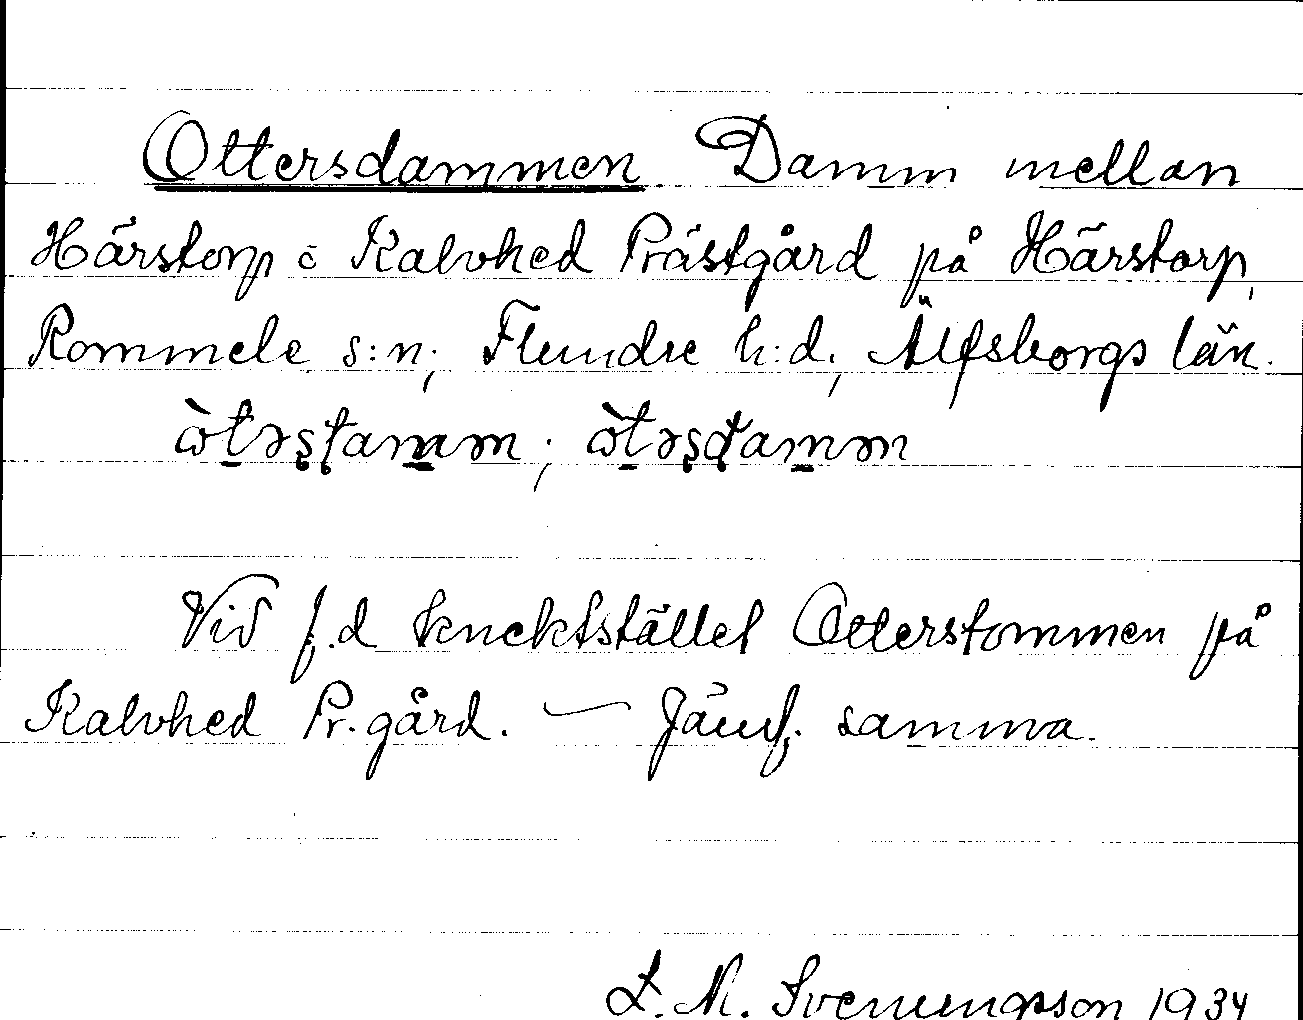 Ottersdammen Damm mellan
Härstorp o Kalvhed Prästgård på Härstorp,
Rommele s:n; Flundre h:d; Älfsborgs län.
ὼtəʂʈamm; ὼtəʂɖamm
Vid f.d knektstället Otterstommen på
Kalvhed Pr. gård. — Jämf. samma.
L. M. Svenungsson 1934